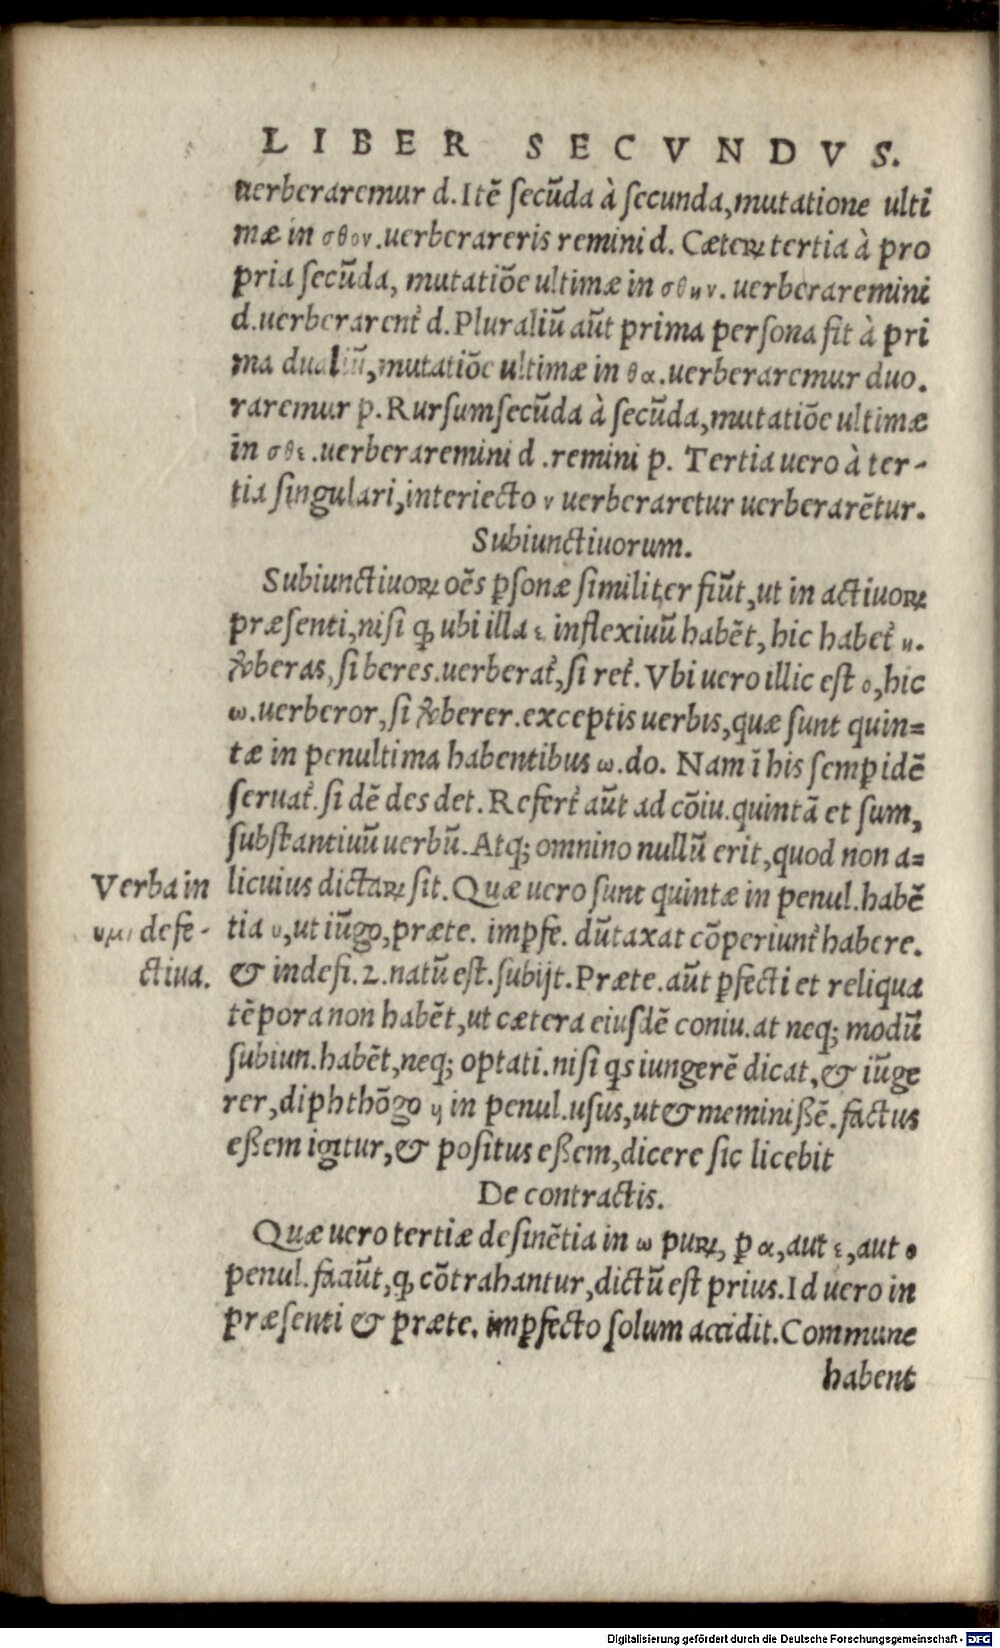 LIBER SECVNDVS.
uerberaremur d. Itē ſecūda à ſecunda, mutatione ulti
mæ in σθον. uerberareris remini d. Cæteꝝ tertia à pro
pria ſecūda, mutatiōe ultimæ in σθην. uerberaremini
d. uerberarent᷑ d. Pluraliū aūt prima perſona fit à pri
ma dualiū, mutatiōe ultimæ in θα. uerberaremur duo.
raremur p. Rurſum ſecūda à ſecūda, mutatiōe ultimæ
in σθε. uerberaremini d. remini p. Tertia uero à ter-
tia ſingulari, interiecto ν uerberaretur uerberarētur.
Subiunctiuorum.
Subiunctiuoꝝ oēs ꝑſonæ ſimiliter fiūt, ut in actiuoꝝ
præſenti, niſi ꝙ ubi illa ε inflexiuū habēt, hic habet᷑ η.
ꝟberas, ſi beres. uerberat᷑, ſi ret᷑. Vbi uero illic eſt ο, hic
ω. uerberor, ſi ꝟberer. exceptis uerbis, quæ ſunt quin=
tæ in penultima habentibus ω. do. Nam ī his ſemꝑ idē
ſeruat᷑. ſi dē des det. Refert᷑ aūt ad cōiu. quintā et ſum,
ſubſtantiuū uerbū. Atq; omnino nullū erit, quod non a=
licuius dictaꝝ ſit. Quæ uero ſunt quintæ in penul. habē
tia υ, ut iūgo, præte. imꝑfe. dūtaxat cōperiunt᷑ habere.
& indefi. 2. natū eſt. ſubijt. Præte. aūt ꝑfecti et reliqua
tēpora non habēt, ut cætera eiuſdē coniu. at neq; modū
ſubiun. habēt, neq; optati. niſi qs iungerē dicat, & iūge
rer, diphthōgo ῃ in penul. uſus, ut & meminiſſē. factus
eſſem igitur, & poſitus eſſem, dicere ſic licebit
Verba in
υμι defe-
ctiua.
De contractis.
Quæ uero tertiæ deſinētia in ω puꝝ, ꝑ α, aut ε, aut ο
penul. faciūt, ꝙ cōtrahantur, dictū eſt prius. Id uero in
præſenti & præte. imꝑfecto ſolum accidit. Commune
habent
Digitalisierung gefördert durch die Deutsche Forschungsgemeinschaft - DFG